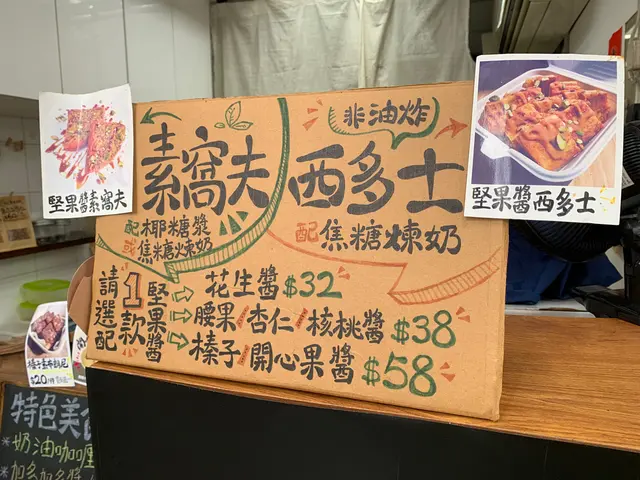 非油炸
素窩夫 西多士
配椰糖漿
或焦糖煉奶
配焦糖煉奶
請選配1款堅果醬
花生醬$32
腰果/杏仁/核桃醬$38
榛子/開心果醬$58
堅果醬素窩夫
堅果醬西多士
$20/件
特色美
*奶油咖喱
*加多加多醬